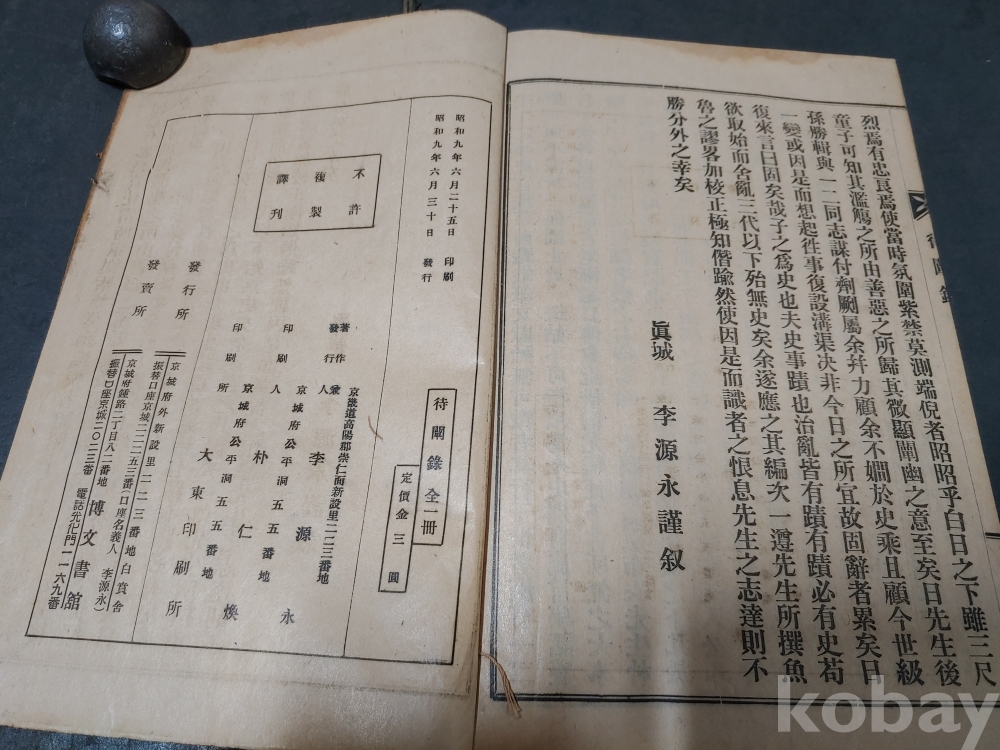 烈焉有忠良焉使當時氛圍紫禁莫測端倪者昭昭乎白日之下雖三尺
童子可知其濫觴之所由善惡之所歸其微顯闡幽之意至矣日先生後
孫勝輯與一二同志謀付剞劂屬余幷力顧余不嫺於史乘且顧今世級
一變或因是而想起徃事復設溝渠决非今日之所宜故固辭者累矣日
復來言曰固矣哉子之爲史也夫史事蹟也治亂皆有蹟有蹟必有史苟
欲取始而舍亂三代以下殆無史矣余遂應之其編次一遵先生所撰魚
魯之謬畧加校正極知僭踰然使因是而識者之恨息先生之志達則不
勝分外之幸矣
眞城 李源永謹叙
昭和九年六月二十五日 印刷
昭和九年六月三十日 發行
不許
複製
譯刊
待闡錄 全一冊
定價金三圓
京畿道高陽郡崇仁面新設里二二三番地
著作兼
發行人 李源永
京城府公平洞五五番地
印刷人 朴仁煥
京城府公平洞五五番地
印刷所 大東印刷所
發行所 京城府外新設里二二三番地 白賁舍
振替口座京城二二二五三番(口座名義人 李源永)
發賣所 京城府鍾路二丁目八二番地 博文書舘
振替口座京城二〇二三番 電話光化門一一六九番
kobay